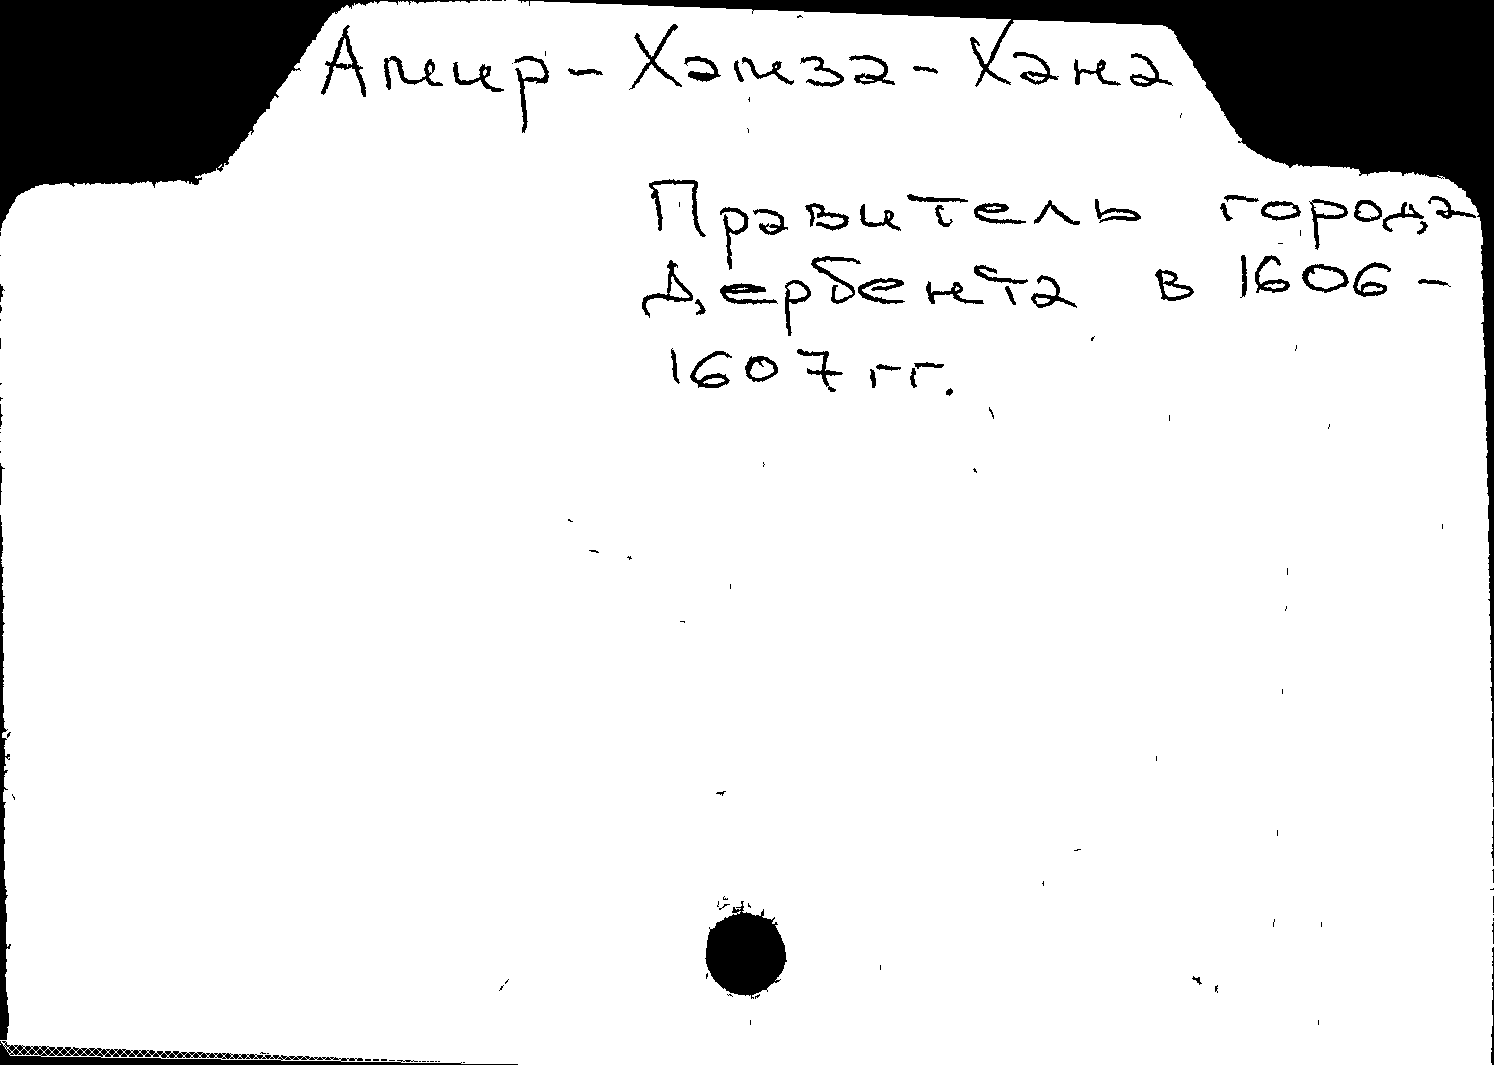 Амир-Хамза-Хана
Правитель города
Дербента в 1606-
1607 гг.